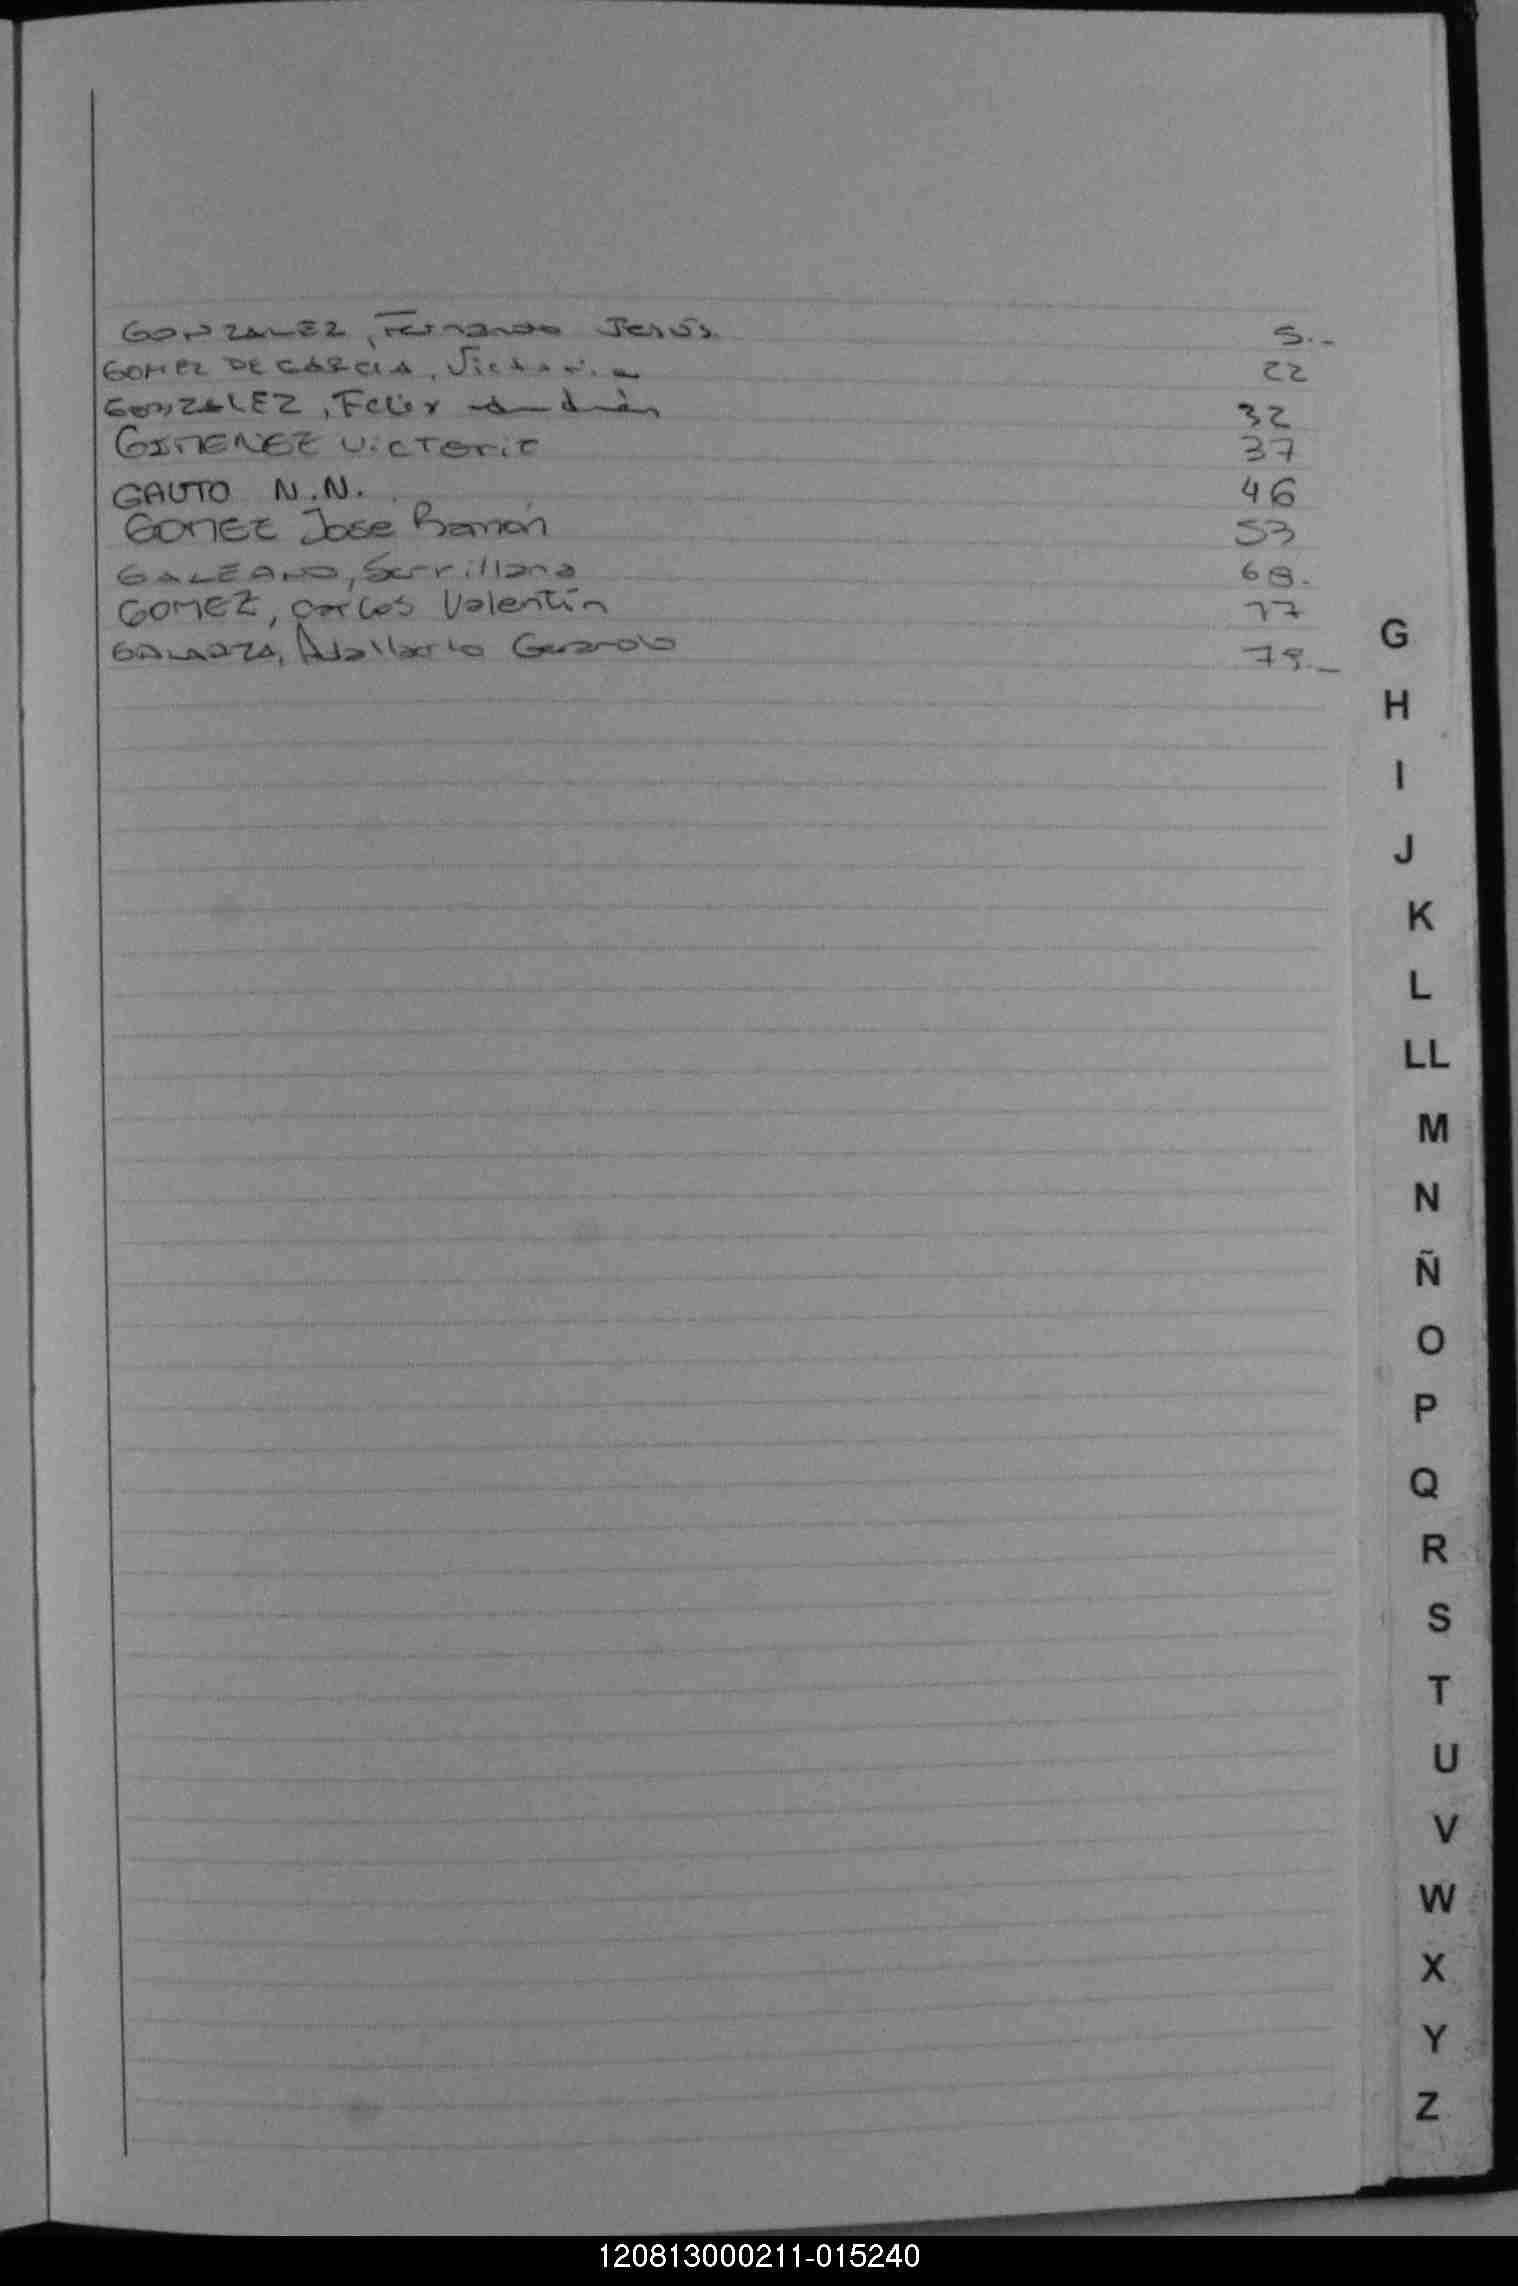 GONZALEZ, Fernando Jesús 5.-
GOMEZ DE GARCIA, Victoria 22
GONZALEZ, Felix Andrés 32
GIMENEZ Victoria 37
GAUTO N.N. 46
GOMEZ Jose Ramón 53
GALEANO, 68.
GOMEZ, Carlos Valentín 77
GALARZA, Adalberto Gerardo 79.-
G
H
I
J
K
L
LL
M
N
Ñ
O
P
Q
R
S
T
U
V
W
X
Y
Z
120813000211-015240